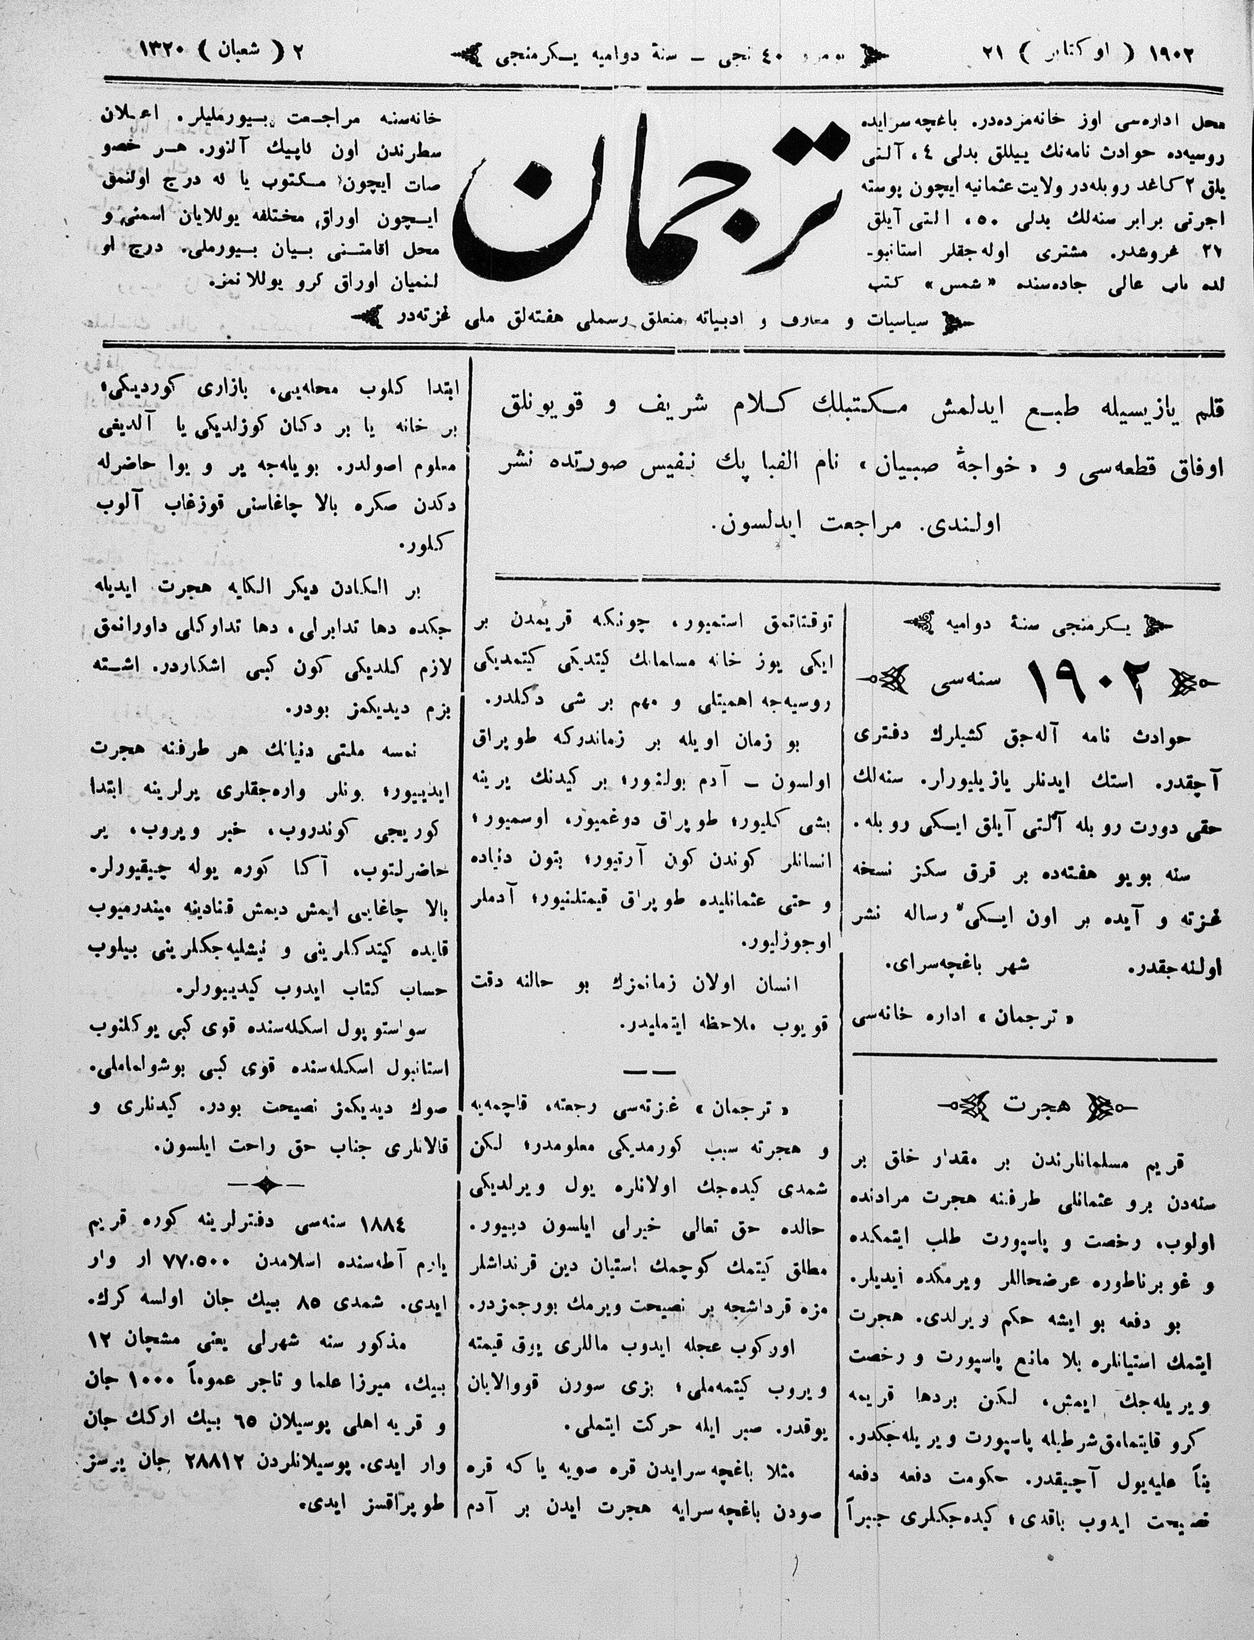 ١٩٠٢ ( اوكتابر ) ٢١
نومرو ٤٠ نجی ـ سنهٔ دوامیه یكرمنجی
٢ ( شعبان ) ١٣٢٠
محل اداره‌سی اوز خانه‌مزده‌در. باغچه‌سرایده
روسیه‌ده حوادث نامه‌نك ییللق بدلی ٤، آلتی
یلق ٢ كاغد روبله‌در ولایت عثمانیه ایچون پوسته
اجرتی برابر سنه‌لك بدلی ٥٠، التی آیلق
٢٧ غروشدر. مشتری اوله‌جقلر استانبو-
لده باب عالی جاده‌سنده «شمس» كتب
ترجمان
خانه‌سنه مراجعت بیورملیلر. اعلان
سطرندن اون قاپیك آلنور. هر خصو
صات ایچون مكتوب یا له درج اولنمق
ایچون اوراق مختلفه یوللایان اسمنی و
محل اقامتنی بیان بیورملی. درج او
لنمیان اوراق كرو یوللانمز.
سیاسیات و معارف و ادبیاته متعلق رسملی هفته‌لق ملی غزته‌در
قلم یازیسیله طبع ایدلمش مكتبلك كلام شریف و قویونلق
اوفاق قطعه‌سی و «خواجهٔ صبیان» نام الفبا پك نفیس صورتده نشر
اولندی. مراجعت ایدلسون.
یكرمنجی سنهٔ دوامیه
١٩٠٢ سنه‌سی
حوادث نامه آله‌جق كشیلرك دفتری
آچقدر. استك ایدنلر یازیلیورلر. سنه‌لك
حقی دورت روبله آلتی آیلق ایكی روبله.
سنه بویو هفته‌ده بر قرق سكز نسخه
غزته و آیده بر اون ایكی رساله نشر
اولنه‌جقدر. شهر باغچه‌سرای.
«ترجمان» اداره خانه‌سی
هجرت
قریم مسلمانلرندن بر مقدار خلق بر
سنه‌دن برو عثمانلی طرفنه هجرت مرادنده
اولوب، رخصت و پاسپورت طلب ایتمكده
و غوبرناطوره عرضحاللر ویرمكده ایدیلر.
بو دفعه بو ایشه حكم ویرلدی. هجرت
ایتمك استیانلره بلا مانع پاسپورت و رخصت
ویریله‌جك ایمش، لكن بردها قریمه
كرو قایتمامق شرطیله پاسپورت ویریله‌جكدر.
بناً علیه یول آچیقدر. حكومت دفعه دفعه
نصیحت ایدوب باقدی؛ كیده‌جكلری جبراً
توقتاتمق استمیور، چونكه قریمدن بر
ایكی یوز خانه مسلمانك كیتدیكی كیتمدیكی
روسیه‌جه اهمیتلی و مهم بر شی دكلدر.
بو زمان اویله بر زماندركه طوپراق
اولسون ـ آدم بولنور؛ بر كیدنك یرینه
بشی كلیور؛ طوپراق دوغمیور، اوسمیور؛
انسانلر كوندن كون آرتیور؛ بتون دنیاده
و حتی عثمانلیده طوپراق قیمتلنیور؛ آدملر
اوجوزلیور.
انسان اولان زمانه‌مزك بو حالنه دقت
قویوب ملاحظه ایتملیدر.
«ترجمان» غزته‌سی رجعته، قاچمه‌یه
و هجرته سبب كورمدیكی معلومدر؛ لكن
شمدی كیده‌جك اولانلره یول ویرلدیكی
حالده حق تعالی خیرلی ایلسون دییور.
مطلق كیتمك كوچمك استیان دین قرنداشلر
مزه قرداشجه بر نصیحت ویرمك بورجمزدر.
اوركوب عجله ایدوب ماللری یوق قیمته
ویروب كیتمه‌ملی؛ بزی سورن قووالایان
یوقدر. صبر ایله حركت ایتملی.
مثلا باغچه‌سرایدن قره صوبه یا كه قره
صودن باغچه‌سرایه هجرت ایدن بر آدم
ابتدا كلوب محله‌یی، بازاری كوردیكی؛
بر خانه یا بر دكان كوزلدیكی یا آلدیغی
معلوم اصولدر. بویله‌جه یر و یوا حاضرله
دكدن صكره بالا چاغاسنی قوزغاب آلوب
كلور.
بر الكادن دیكر الكایه هجرت ایدیله
جكده دها تدابرلی، دها تداركلی داورانمق
لازم كلدیكی كون كبی اشكاردر. اشته
بزم دیدیكمز بودر.
نمسه ملتی دنیانك هر طرفنه هجرت
ایدییور؛ بونلر واره‌جقلری یرلرینه ابتدا
كوریجی كوندروب، خبر ویروب، یر
حاضرلتوب، آكا كوره یوله چیقیورلر.
بالا چاغایی ایمش دیمش قنادینه میندرمیوب
قایده كیتدكلرینی و نیشلیه‌جكلرینی بیلوب
حساب كتاب ایدوب كیدییورلر.
سواستوپول اسكله‌سنده قوی كبی یوكلنوب
استانبول اسكله‌سنده قوی كبی بوشولماملی.
صوك دیدیكمز نصیحت بودر. كیدنلری و
قالانلری جناب حق راحت ایلسون.
١٨٨٤ سنه‌سی دفترلرینه كوره قریم
یارم آطه‌سنده اسلامدن ٧٧،٥٠٠ ار وار
ایدی. شمدی ٨٥ بیك جان اولسه كرك.
مذكور سنه شهرلی یعنی مشچان ١٢
بیك، میرزا علما و تاجر عموماً ١٠٠٠ جان
و قریه اهلی پوسیلان ٦٥ بیك اركك جان
وار ایدی. پوسیلانلردن ٢٨٨١٢ جان یرسز
طوپراقسز ایدی.